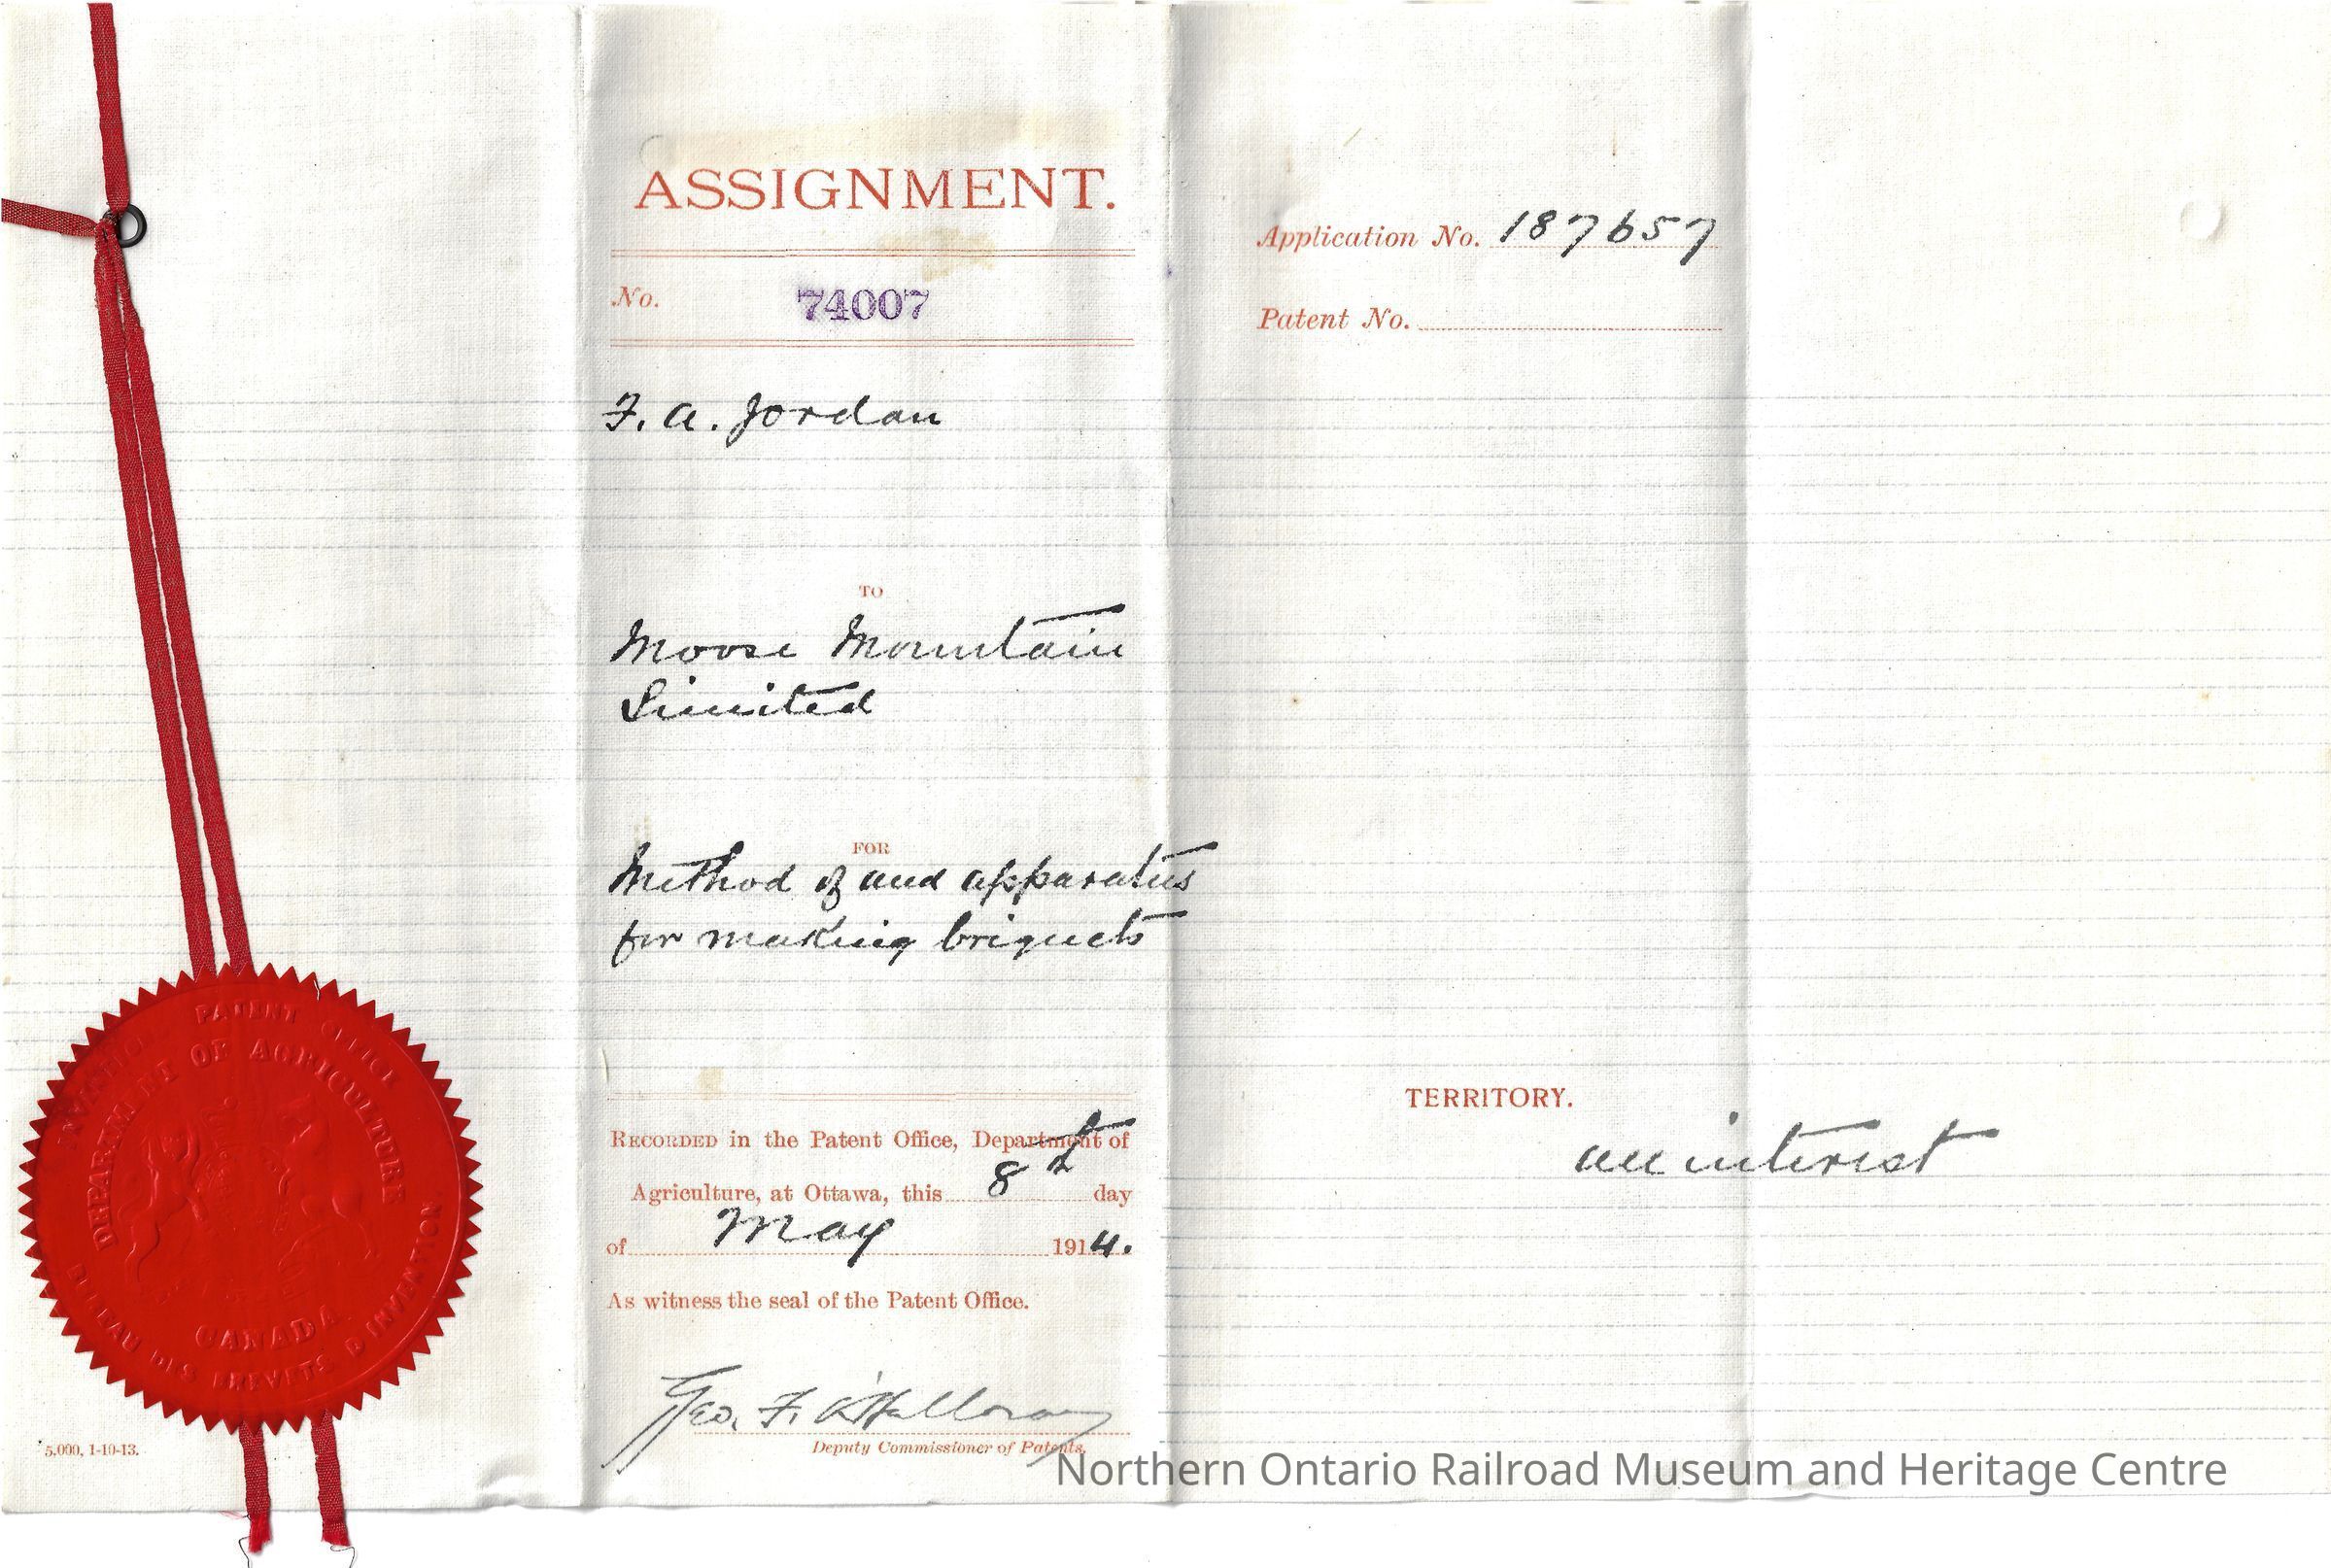 ASSIGNMENT.
No. 74007
F. A. Jordan
TO
Moose Mountain
Limited
FOR
Method of and apparatus
for making briquets
RECORDED in the Patent Office, Department of
Agriculture, at Ottawa, this 8th day
of May 1914.
As witness the seal of the Patent Office.
Geo. F. O'Halloran
Deputy Commissioner of Patents.
Application No. 187657
Patent No.
TERRITORY.
all interest
PATENT OFFICE
DEPARTMENT OF AGRICULTURE
CANADA
BUREAU DES BREVETS D'INVENTION
5,000, 1-10-13.
Northern Ontario Railroad Museum and Heritage Centre